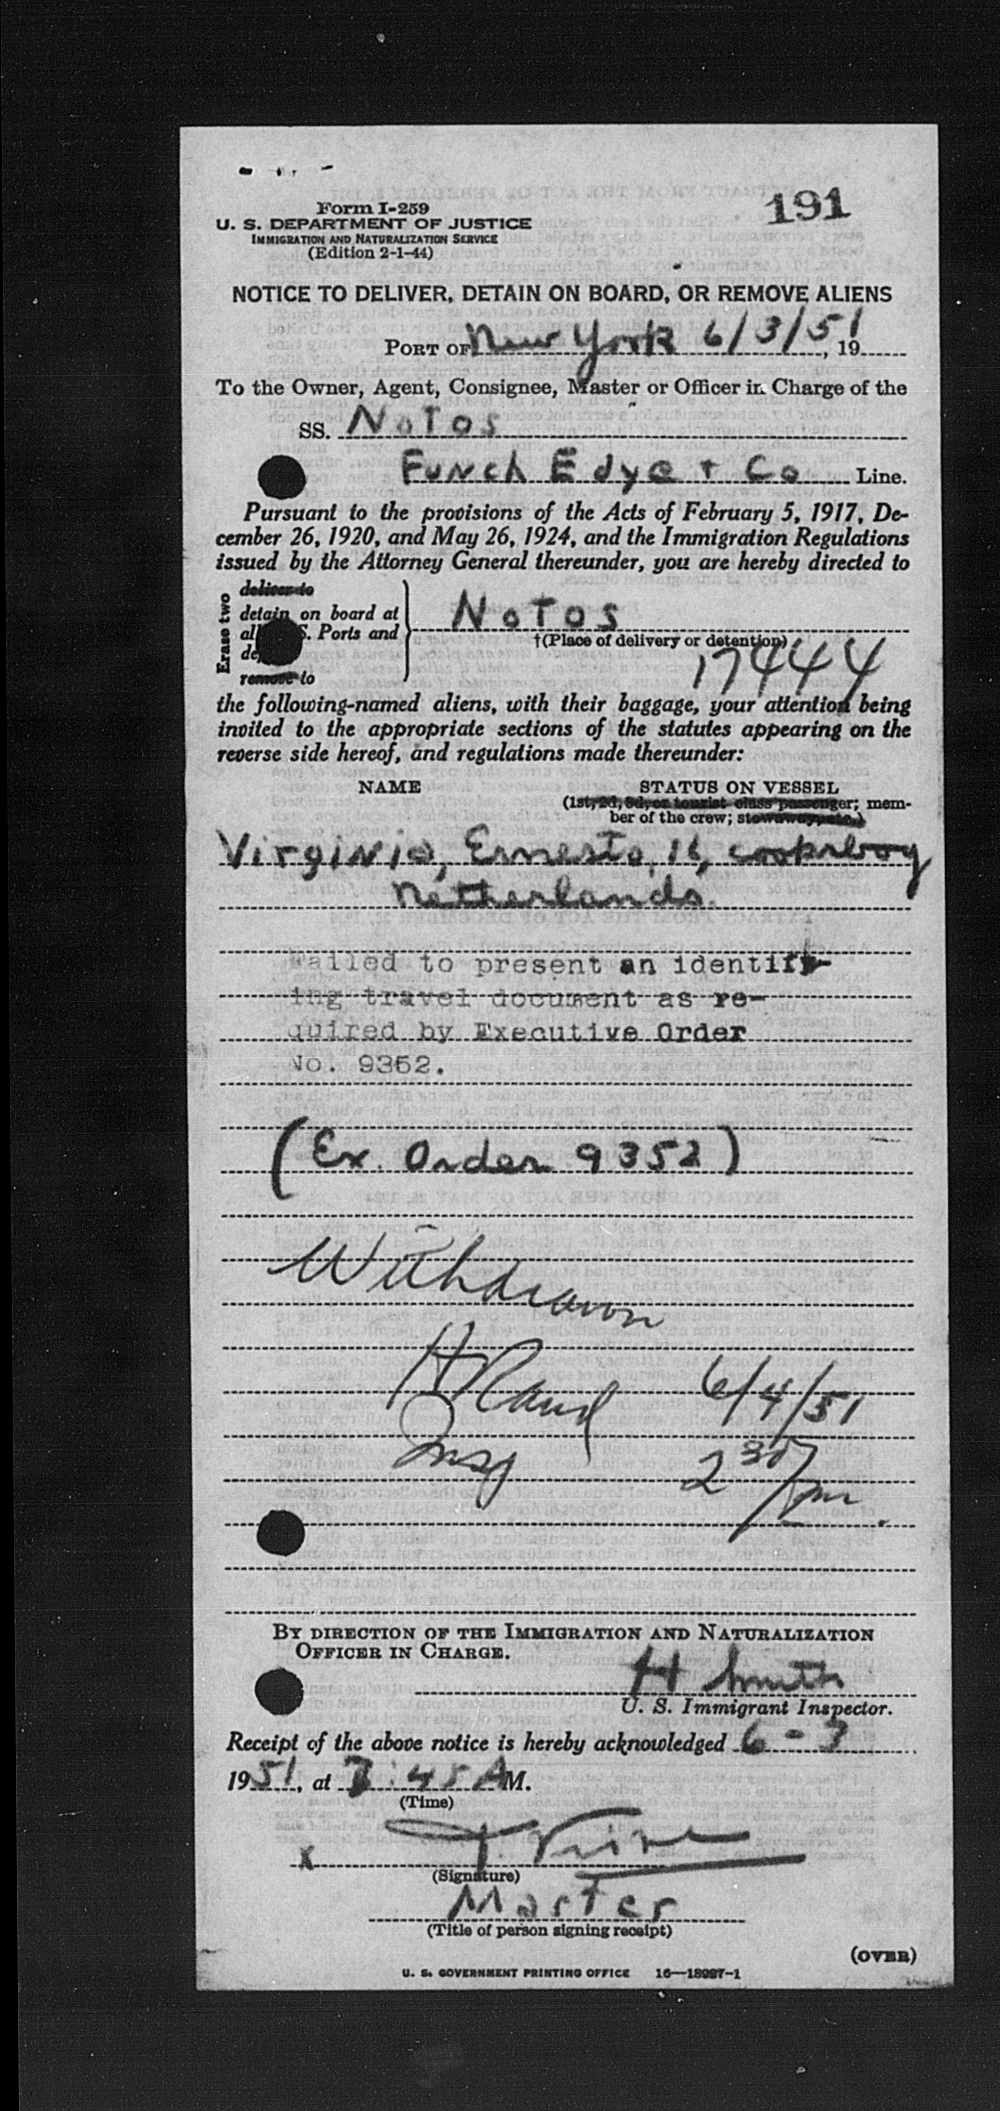 191
Form I-259
U. S. DEPARTMENT OF JUSTICE
IMMIGRATION AND NATURALIZATION SERVICE
(Edition 2-1-44)
NOTICE TO DELIVER, DETAIN ON BOARD, OR REMOVE ALIENS
PORT OF New York 6/3/51, 19
To the Owner, Agent, Consignee, Master or Officer in Charge of the
SS. Notos
Funch Edye + Co Line.
Pursuant to the provisions of the Acts of February 5, 1917, De-
cember 26, 1920, and May 26, 1924, and the Immigration Regulations
issued by the Attorney General thereunder, you are hereby directed to
Erase two
deliver to
detain on board at
S. Ports and
remove to
Notos
†(Place of delivery or detention)
17444
the following-named aliens, with their baggage, your attention being
invited to the appropriate sections of the statutes appearing on the
reverse side hereof, and regulations made thereunder:
NAME STATUS ON VESSEL
(1st, 2d, 3d, or tourist class passenger; mem-
ber of the crew; stowaway, etc.)
Virginia, Ernesto, 16, cooksboy
Netherlands.
Failed to present an identify-
ing travel document as re-
quired by Executive Order
No. 9352.
(Ex. Order 9352)
Withdrawn
H Rand 6/4/51
Insp 2 30 pm.
BY DIRECTION OF THE IMMIGRATION AND NATURALIZATION
OFFICER IN CHARGE.
H Smith
U. S. Immigrant Inspector.
Receipt of the above notice is hereby acknowledged 6-3
1951, at 7:45 AM.
(Time)
x
(Signature)
Master
(Title of person signing receipt)
(OVER)
U. S. GOVERNMENT PRINTING OFFICE 16—18997-1